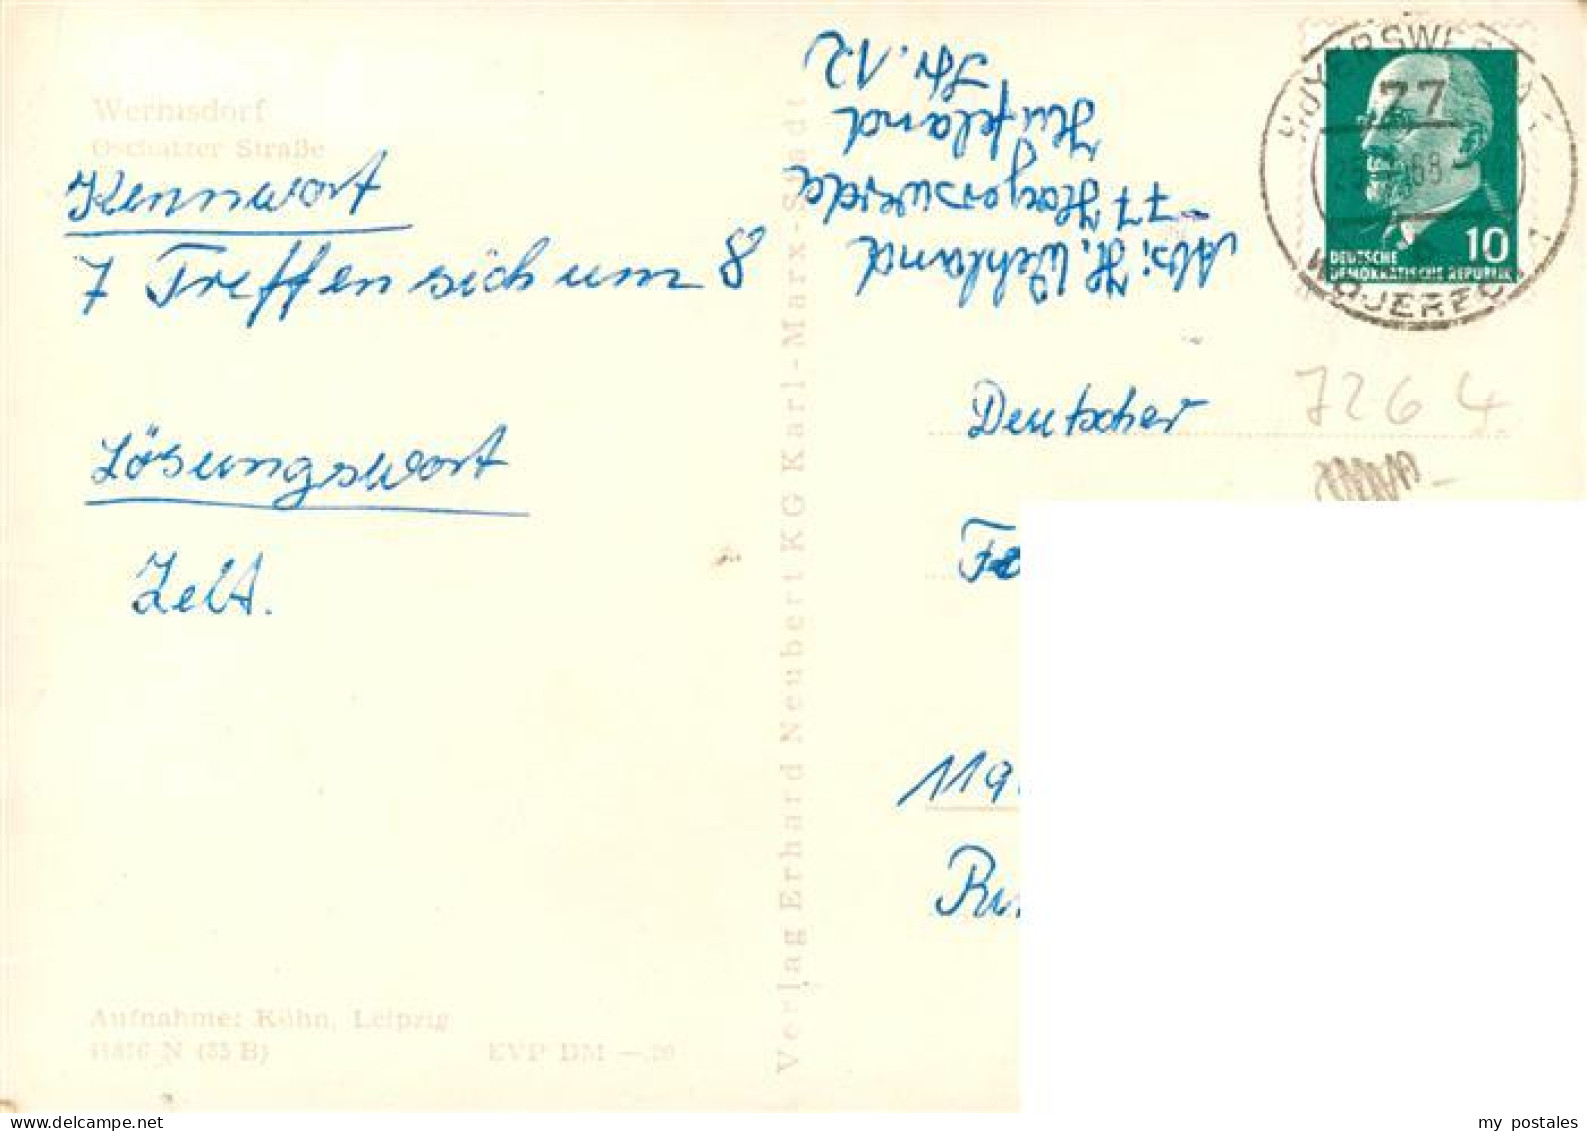 Wermsdorf
Oschatzer Straße
Kennwort
7 Treffen sich um 8
Lösungswort
Zelt.
Aufnahme: Kühn, Leipzig
EVP DM —.20
Verlag Erhard Neubert KG Karl-Marx-Stadt
Abs: H. Wehland
77 Hoyerswerda
Hufeland
Str. 12
HOYERSWERDA
77
68
WOJERECY
10
DEUTSCHE
DEMOKRATISCHE REPUBLIK
7264
Deutscher
119
my postales